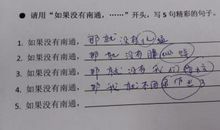 ● 请用“如果没有南通，……”开头，写5句精彩的句子。
1. 如果没有南通，那就没有
2. 如果没有南通，那就没有
3. 如果没有南通，那就没有我们
4. 如果没有南通，那我就不用
5. 如果没有南通，